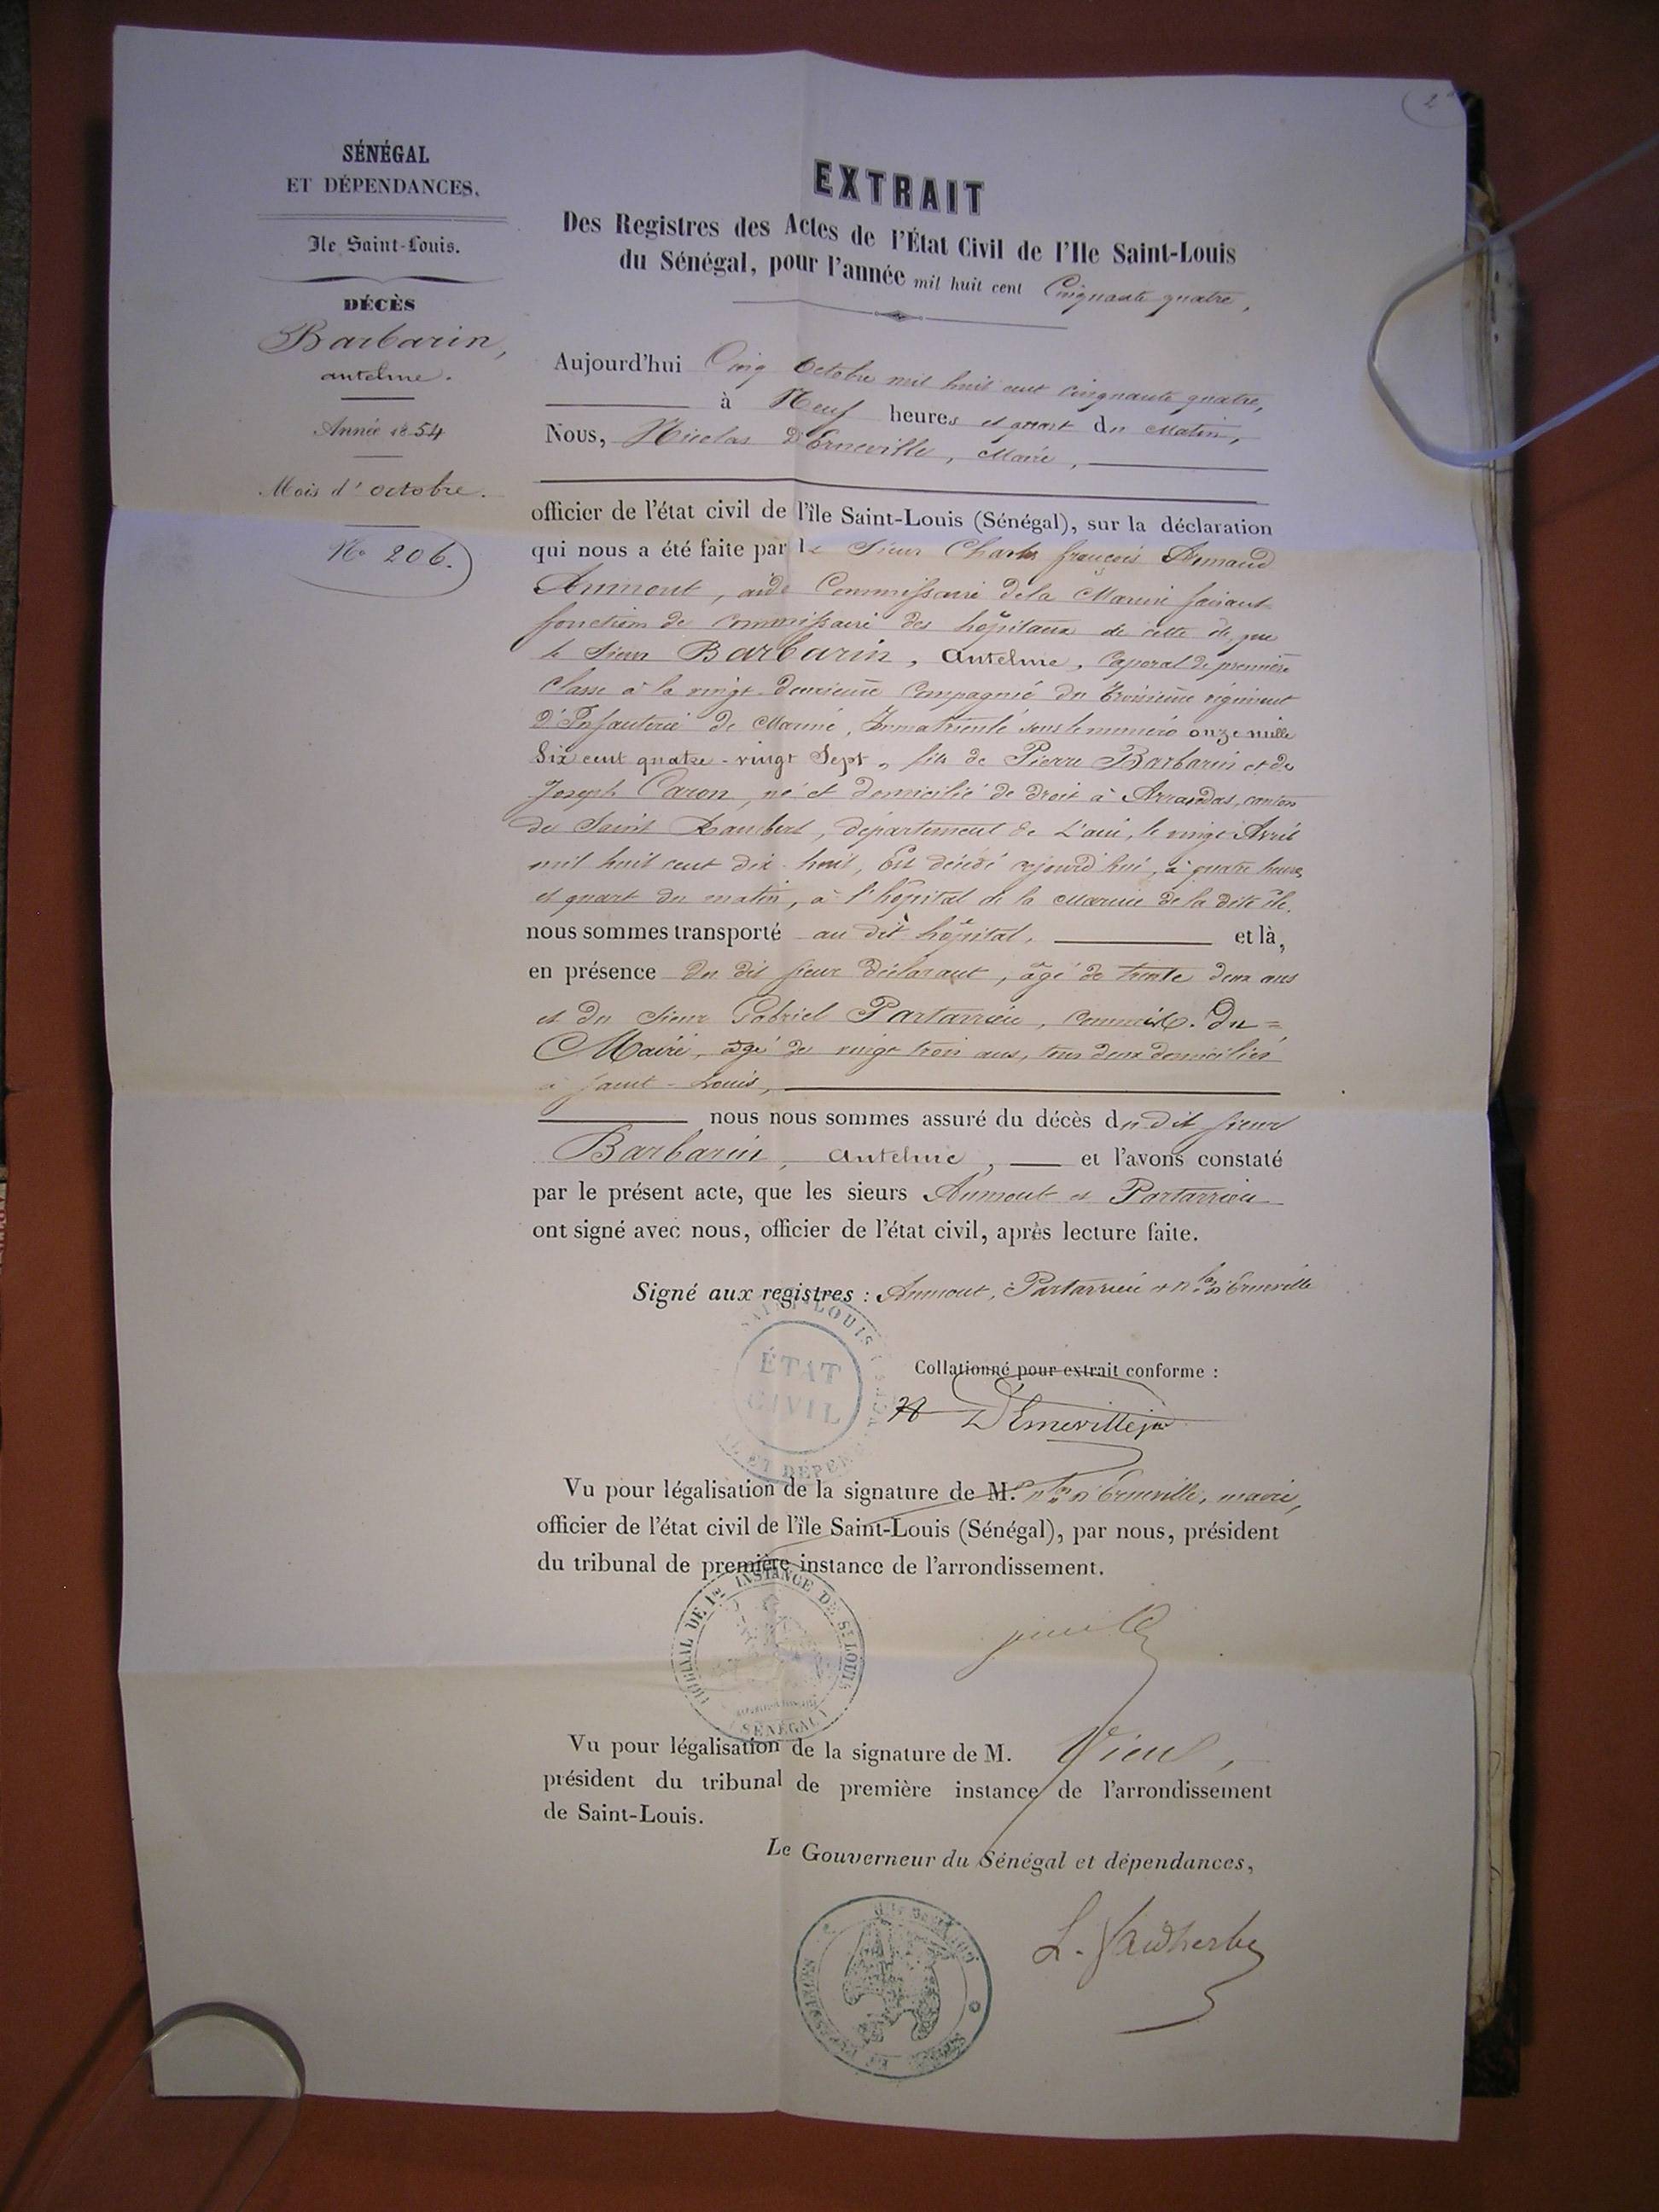 2
SÉNÉGAL
ET DÉPENDANCES.
Ile Saint-Louis.
DÉCÈS
Barbarin,
antelme.
Année 1854
Mois d'octobre.
No 206.
EXTRAIT
Des Registres des Actes de l'État Civil de l'Ile Saint-Louis
du Sénégal, pour l'année mil huit cent Cinquante quatre,
Aujourd'hui Cinq Octobre mil huit cent cinquante quatre,
à Neuf heures et quart du Matin,
Nous, Nicolas D'Erneville, Maire,
officier de l'état civil de l'île Saint-Louis (Sénégal), sur la déclaration
qui nous a été faite par le Sieur Charles françois Armand
Aumont, aide Commissaire de la Marine faisant
fonction de Commissaire des hôpitaux de cette île, que
le Sieur Barbarin, Antelme, Caporal de première
Classe à la vingt-deuxième Compagnie du troisième régiment
D'Infanterie de Marine, Immatriculé sous le numéro onze mille
Six cent quatre-vingt Sept, fils de Pierre Barbarin et de
Joseph Caron, né et domicilié de droit à Arrandas, canton
de Saint Rambert, département de L'ain, le vingt Avril
mil huit cent dix-huit, Est décédé aujourd'hui, à quatre heures
et quart du matin, à l'hôpital de la Marine de la dite île.
nous sommes transporté au dit hôpital, et là,
en présence du dit sieur déclarant, âgé de trente deux ans
et du Sieur Gabriel Partarrieu, Commis. Du =
Maire, âgé de vingt trois ans, tous deux domiciliés
à Saint-Louis,
nous nous sommes assuré du décès du dit sieur
Barbarin, Antelme, et l'avons constaté
par le présent acte, que les sieurs Aumont et Partarrieu
ont signé avec nous, officier de l'état civil, après lecture faite.
Signé aux registres : Aumont, Partarrieu et Nas D'Erneville
SAINT-LOUIS
ÉTAT
CIVIL
ET DÉPEN
Collationné pour extrait conforme :
N D'Erneville
Vu pour légalisation de la signature de M. Nas D'Erneville, maire,
officier de l'état civil de l'île Saint-Louis (Sénégal), par nous, président
du tribunal de première instance de l'arrondissement.
TRIBUNAL DE 1re INSTANCE DE St LOUIS
SÉNÉGAL
Vu pour légalisation de la signature de M.
président du tribunal de première instance de l'arrondissement
de Saint-Louis.
Le Gouverneur du Sénégal et dépendances,
L. Faidherbe